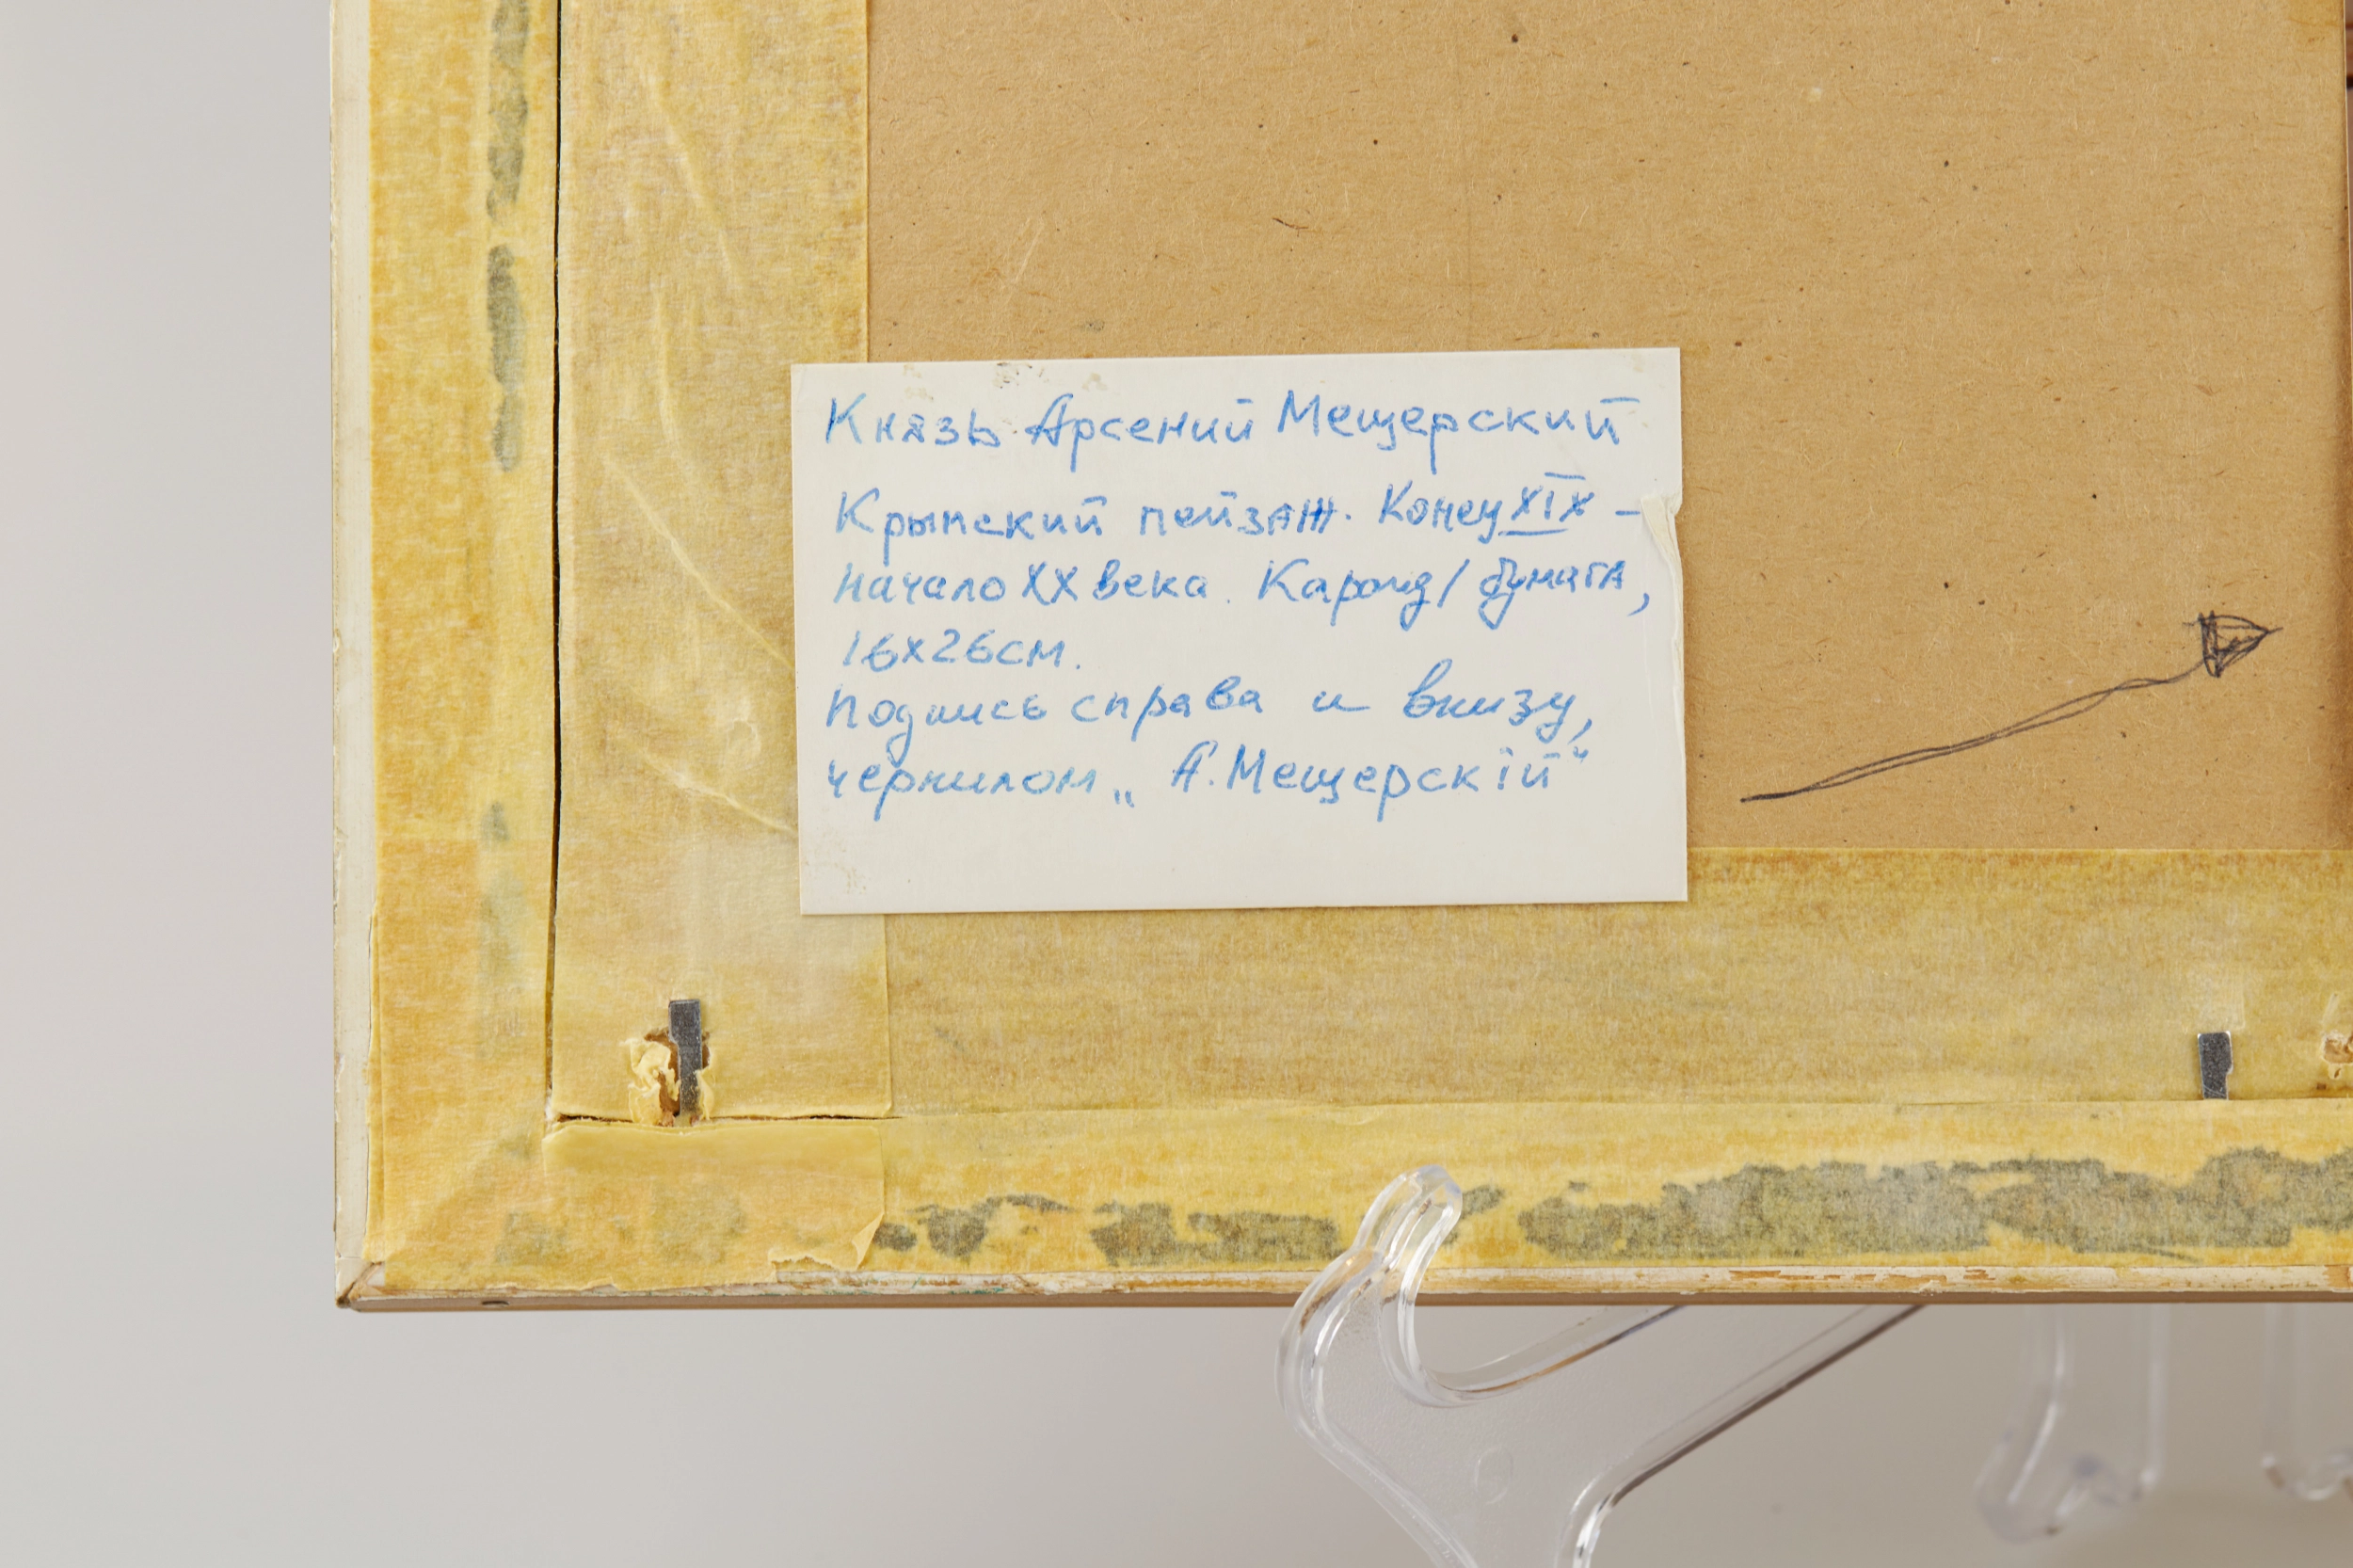 Князь Арсений Мещерский
Крымский пейзаж. Конец XIX –
начало XX века. Каранд/бумага,
16x26см.
Подпись справа и внизу,
чернилом „А.Мещерскій“